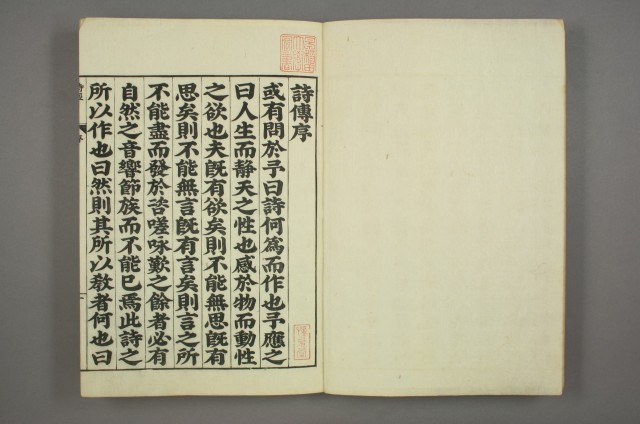 詩傳序
或有問於予曰詩何爲而作也予應之
曰人生而静天之性也感於物而動性
之欲也夫旣有欲矣則不能無思旣有
思矣則不能無言旣有言矣則言之所
不能盡而發於咨嗟咏歎之餘者必有
自然之音響節族而不能已焉此詩之
所以作也曰然則其所以教者何也曰